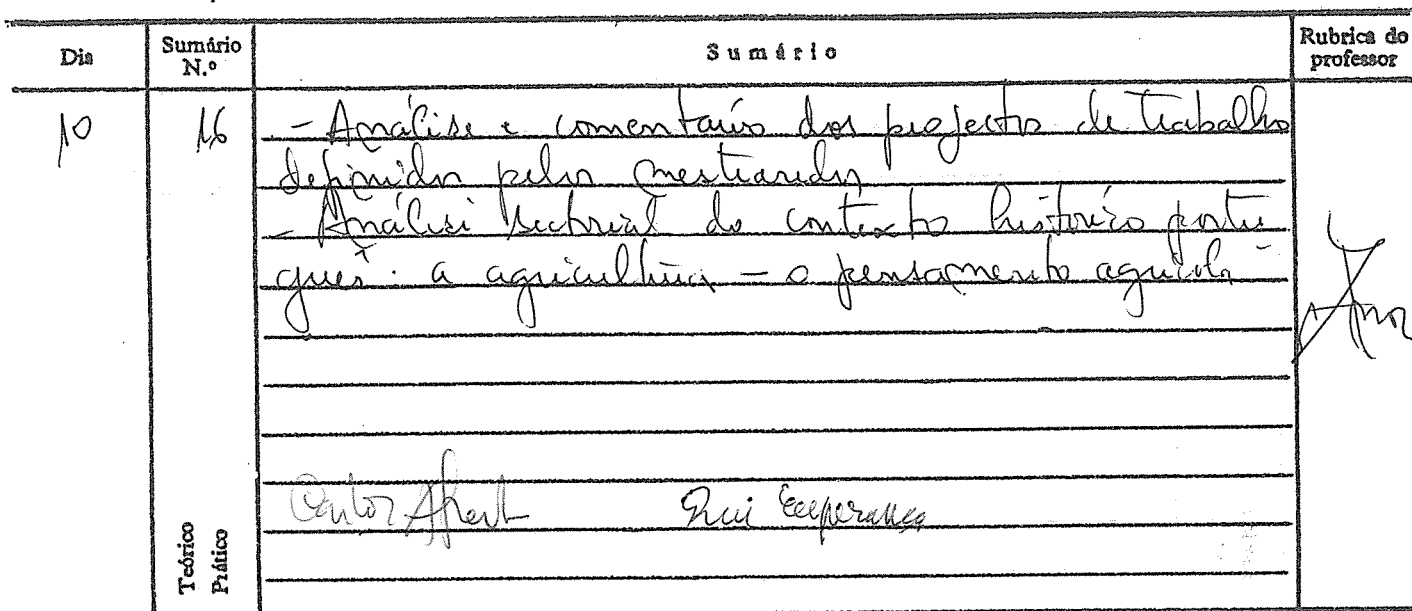 Dia Sumário N.º Sumário Rubrica do professor
10 16 - Análise e comentário dos projectos de trabalho
definidos pelos mestrandos
- Análise sectorial do contexto histórico portu
guês: a agricultura - o pensamento agrícola
Carlos Rui Esperança
Teórico
Prático